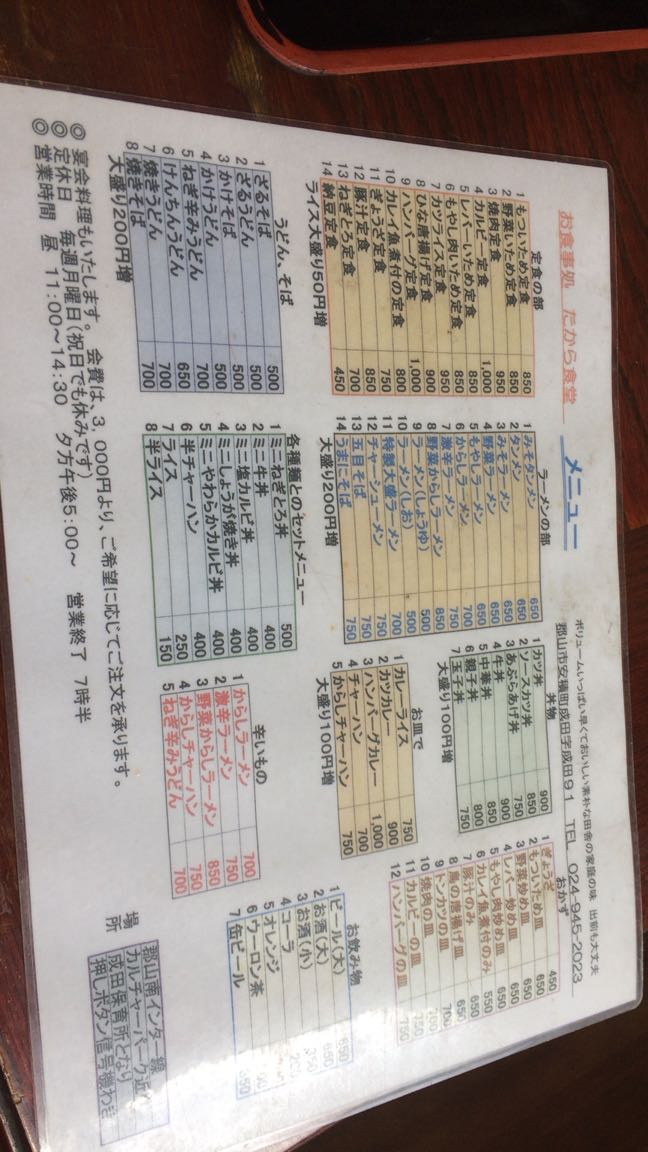 お食事処 たから食堂
メニュー
ボリュームいっぱい早くておいしい素朴な田舎の家庭の味 出前も大丈夫
郡山市安積町成田字成田91 TEL 024-945-2023
定食の部
1 もついため定食 850
2 野菜いため定食 850
3 焼肉定食 950
4 カルビー定食 1,000
5 レバーいため定食 850
6 もやし肉いため定食 850
7 カツライス定食 950
8 ひな唐揚げ定食 900
9 ハンバーグ定食 1,000
10 カレイ魚煮付の定食 800
11 ぎょうざ定食 750
12 豚汁定食 850
13 ねぎとろ定食 700
14 納豆定食 450
ライス大盛り50円増
ラーメンの部
1 みそタンメン 650
2 タンメン 650
3 みそラーメン 650
4 野菜ラーメン 650
5 もやしラーメン 650
6 からしラーメン 700
7 激辛ラーメン 750
8 野菜からしラーメン 850
9 ラーメン(しょうゆ) 500
10 ラーメン(しお) 500
11 特製大盛ラーメン 700
12 チャーシューメン 750
13 五目そば 750
14 うまにそば 750
大盛り200円増
丼物
1 カツ丼 900
2 ソースカツ丼 850
3 あぶらあげ丼 750
4 牛丼 850
5 中華丼 800
6 親子丼 900
7 玉子丼 750
大盛り100円増
おかず
1 ぎょうざ 450
2 もついため皿 650
3 野菜炒め皿 650
4 レバー炒め皿 650
5 もやし肉炒め皿 650
6 カレイ魚煮付のみ 550
7 豚汁のみ 650
8 鳥の唐揚げ皿 650
9 トンカツの皿 700
10 焼肉の皿
11 カルビーの皿 750
12 ハンバーグの皿 750
うどん、そば
1 ざるそば 500
2 ざるうどん 500
3 かけそば 500
4 かけうどん 500
5 ねぎ辛みうどん 700
6 けんちんうどん 650
7 焼きうどん 700
8 焼きそば 700
大盛り200円増
各種麺とのセットメニュー
1 ミニねぎとろ丼 500
2 ミニ牛丼 400
3 ミニ塩カルビ丼 400
4 ミニしょうが焼き丼 400
5 ミニやわらかカルビ丼 400
6 半チャーハン 400
7 ライス 250
8 半ライス 150
お皿で
1 カレーライス 750
2 カツカレー 900
3 ハンバーグカレー 1,000
4 チャーハン 700
5 からしチャーハン 750
大盛り100円増
辛いもの
1 からしラーメン 700
2 激辛ラーメン 750
3 野菜からしラーメン 850
4 からしチャーハン 750
5 ねぎ辛みうどん 700
お飲み物
1 ビール(大) 650
2 お酒(大) 650
3 お酒(小) 350
4 コーラ
5 オレンジ
6 ウーロン茶
7 缶ビール
◎ 宴会料理もいたします。会費は、3,000円より、ご希望に応じてご注文を承ります。
◎ 定休日 毎週月曜日(祝日でも休みです)
◎ 営業時間 昼 11:00〜14:30 夕方午後5:00〜 営業終了 7時半
場所
郡山南インター線
カルチャーパーク近
成田保育所となり
押しボタン信号機わき